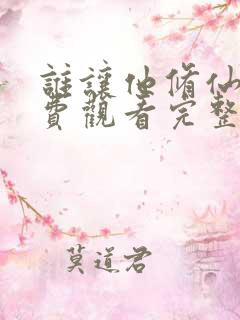 誰讓他脩仙
費觀看完整
莫道君